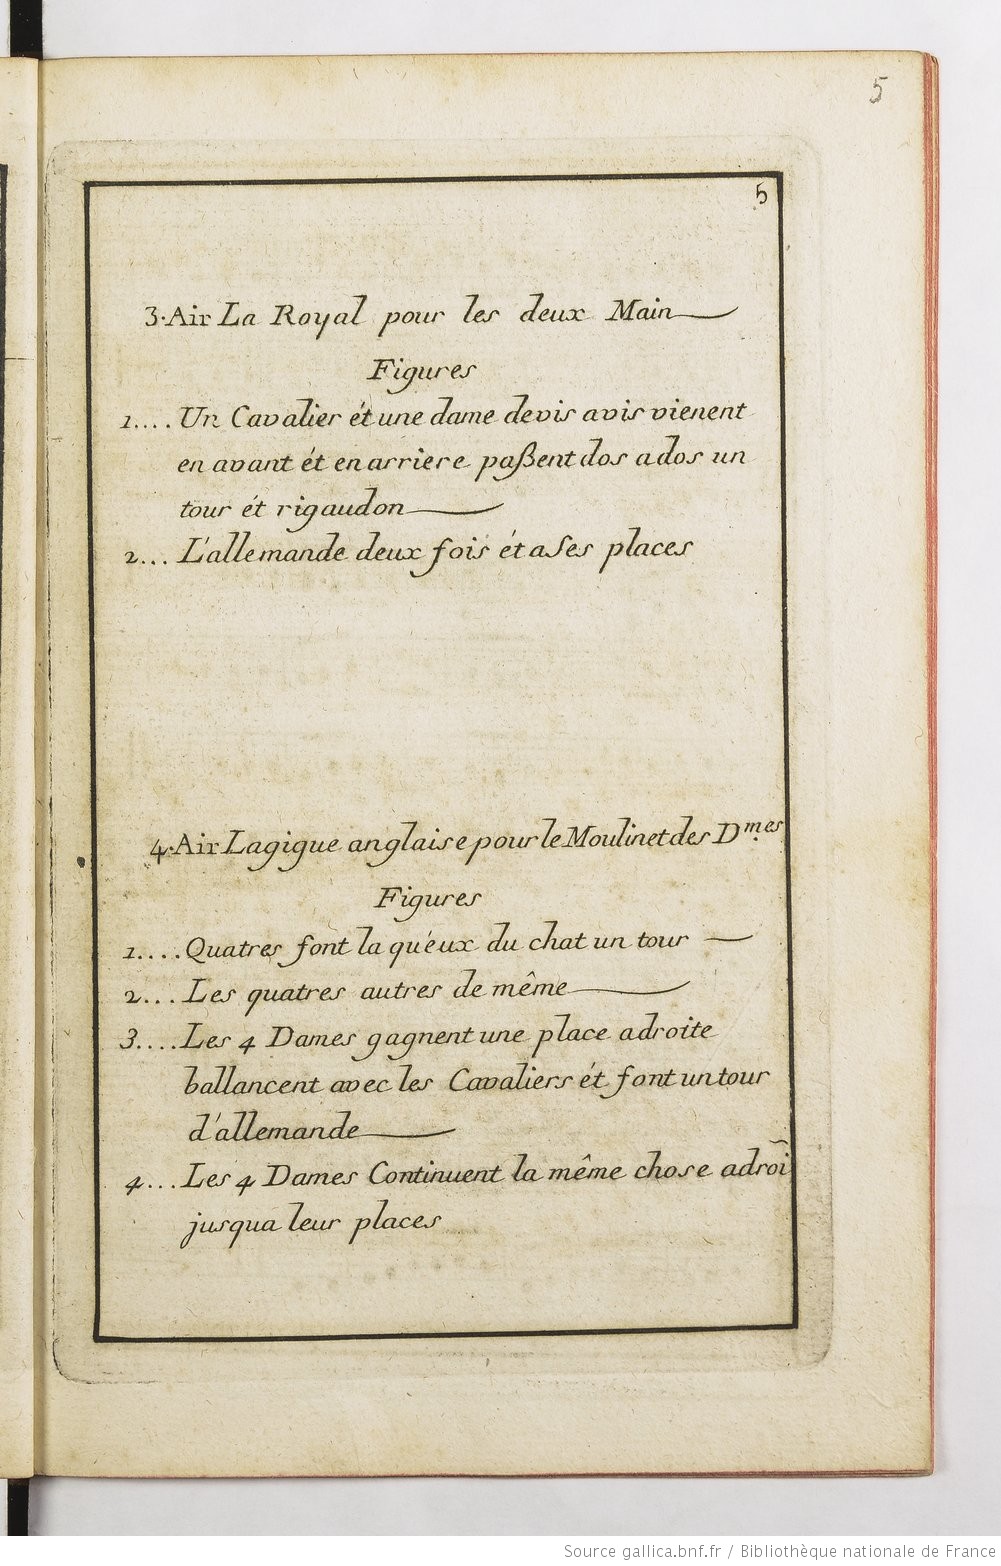 5
5
3. Air La Royal pour les deux Main
Figures
1.... Un Cavalier ét une dame devis avis vienent
en avant ét en arriere paßent dos a dos un
tour ét rigaudon
2... L'allemande deux fois ét a ses places
4. Air La gigue anglaise pour le Moulinet des D.mes
Figures
1.... Quatres font la quéux du chat un tour
2... Les quatres autres de même
3.... Les 4 Dames gagnent une place a droite
ballancent avec les Cavaliers ét font un tour
d'allemande
4... Les 4 Dames Continuent la même chose adroĩ
jusqua leur places
Source gallica.bnf.fr / Bibliothèque nationale de France